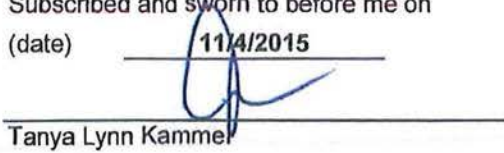 Subscribed and sworn to before me on
(date) 11/4/2015
Tanya Lynn Kammel